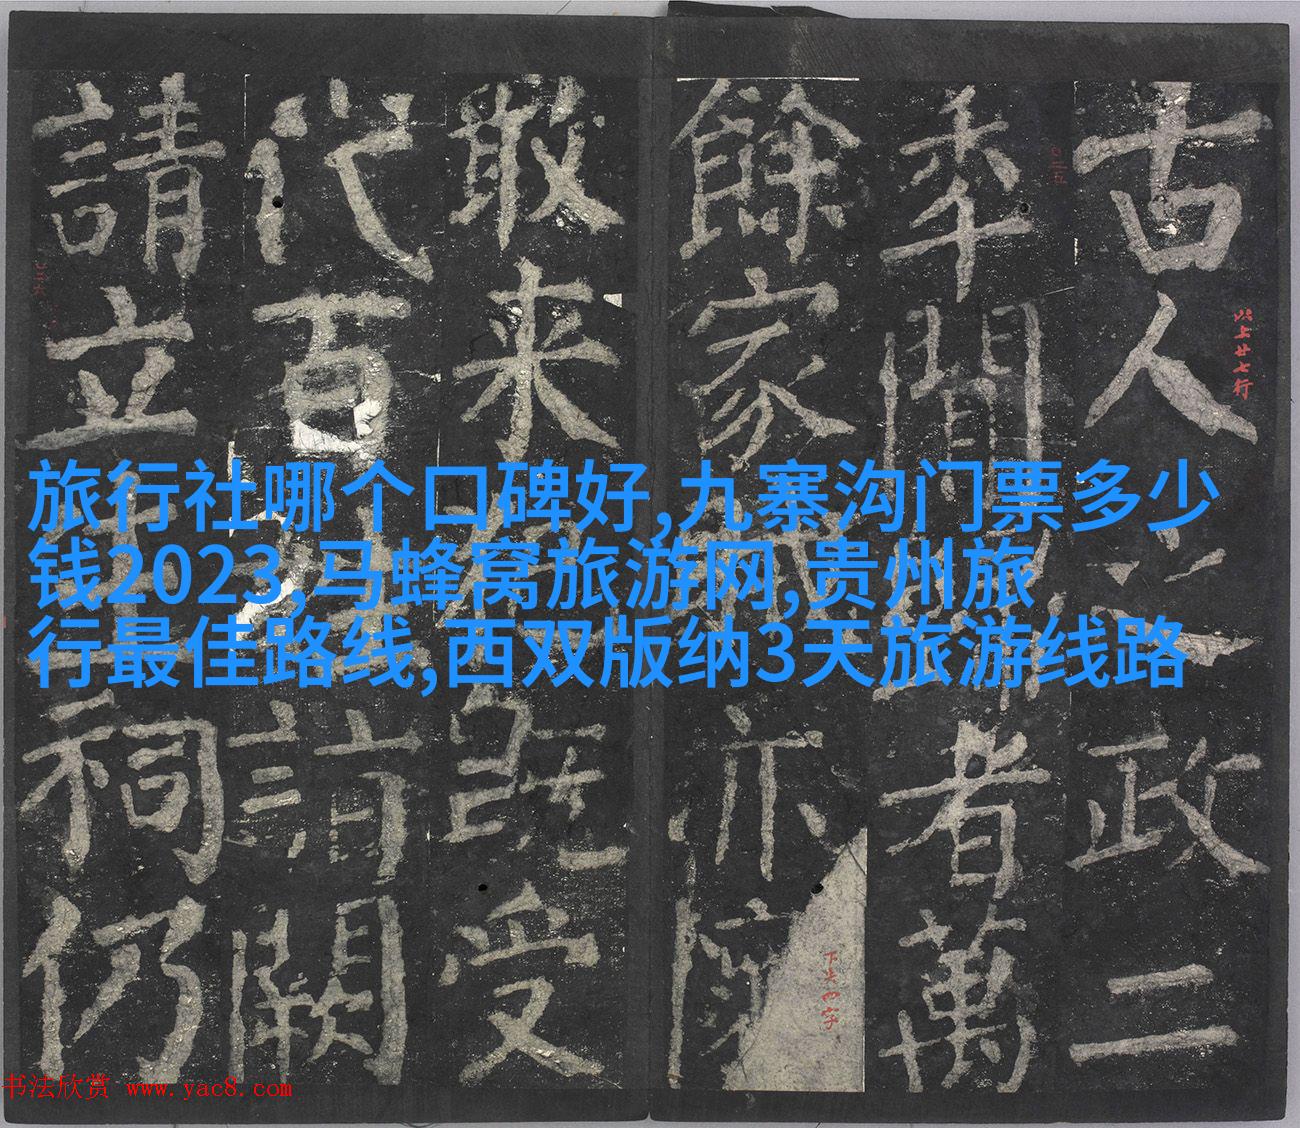 古人之政二
年聞者萬
餘家亦
敢来既受
代百闕
請立生祠仍
以上廿七行
旅行社哪个口碑好,九寨沟门票多少
钱2023,马蜂窝旅游网,贵州旅
行最佳路线,西双版纳3天旅游线路
书法欣赏 www.yac8.com